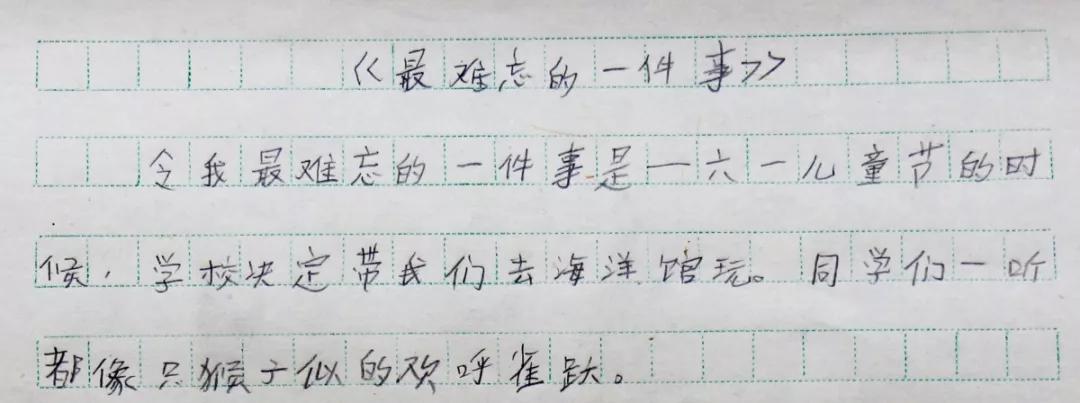 《最难忘的一件事》
令我最难忘的一件事是一六一儿童节的时
候，学校决定带我们去海洋馆玩。同学们一听
都像只猴子似的欢呼雀跃。